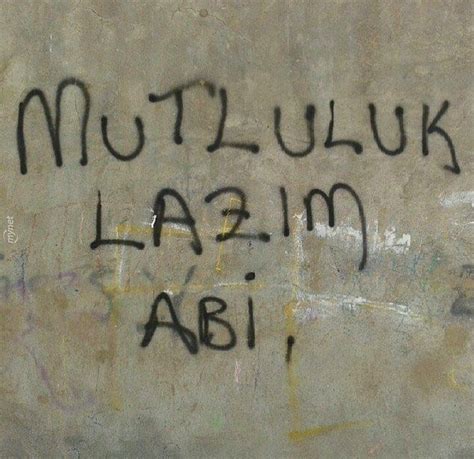 MUTLULUK
LAZIM
ABİ,
mynet